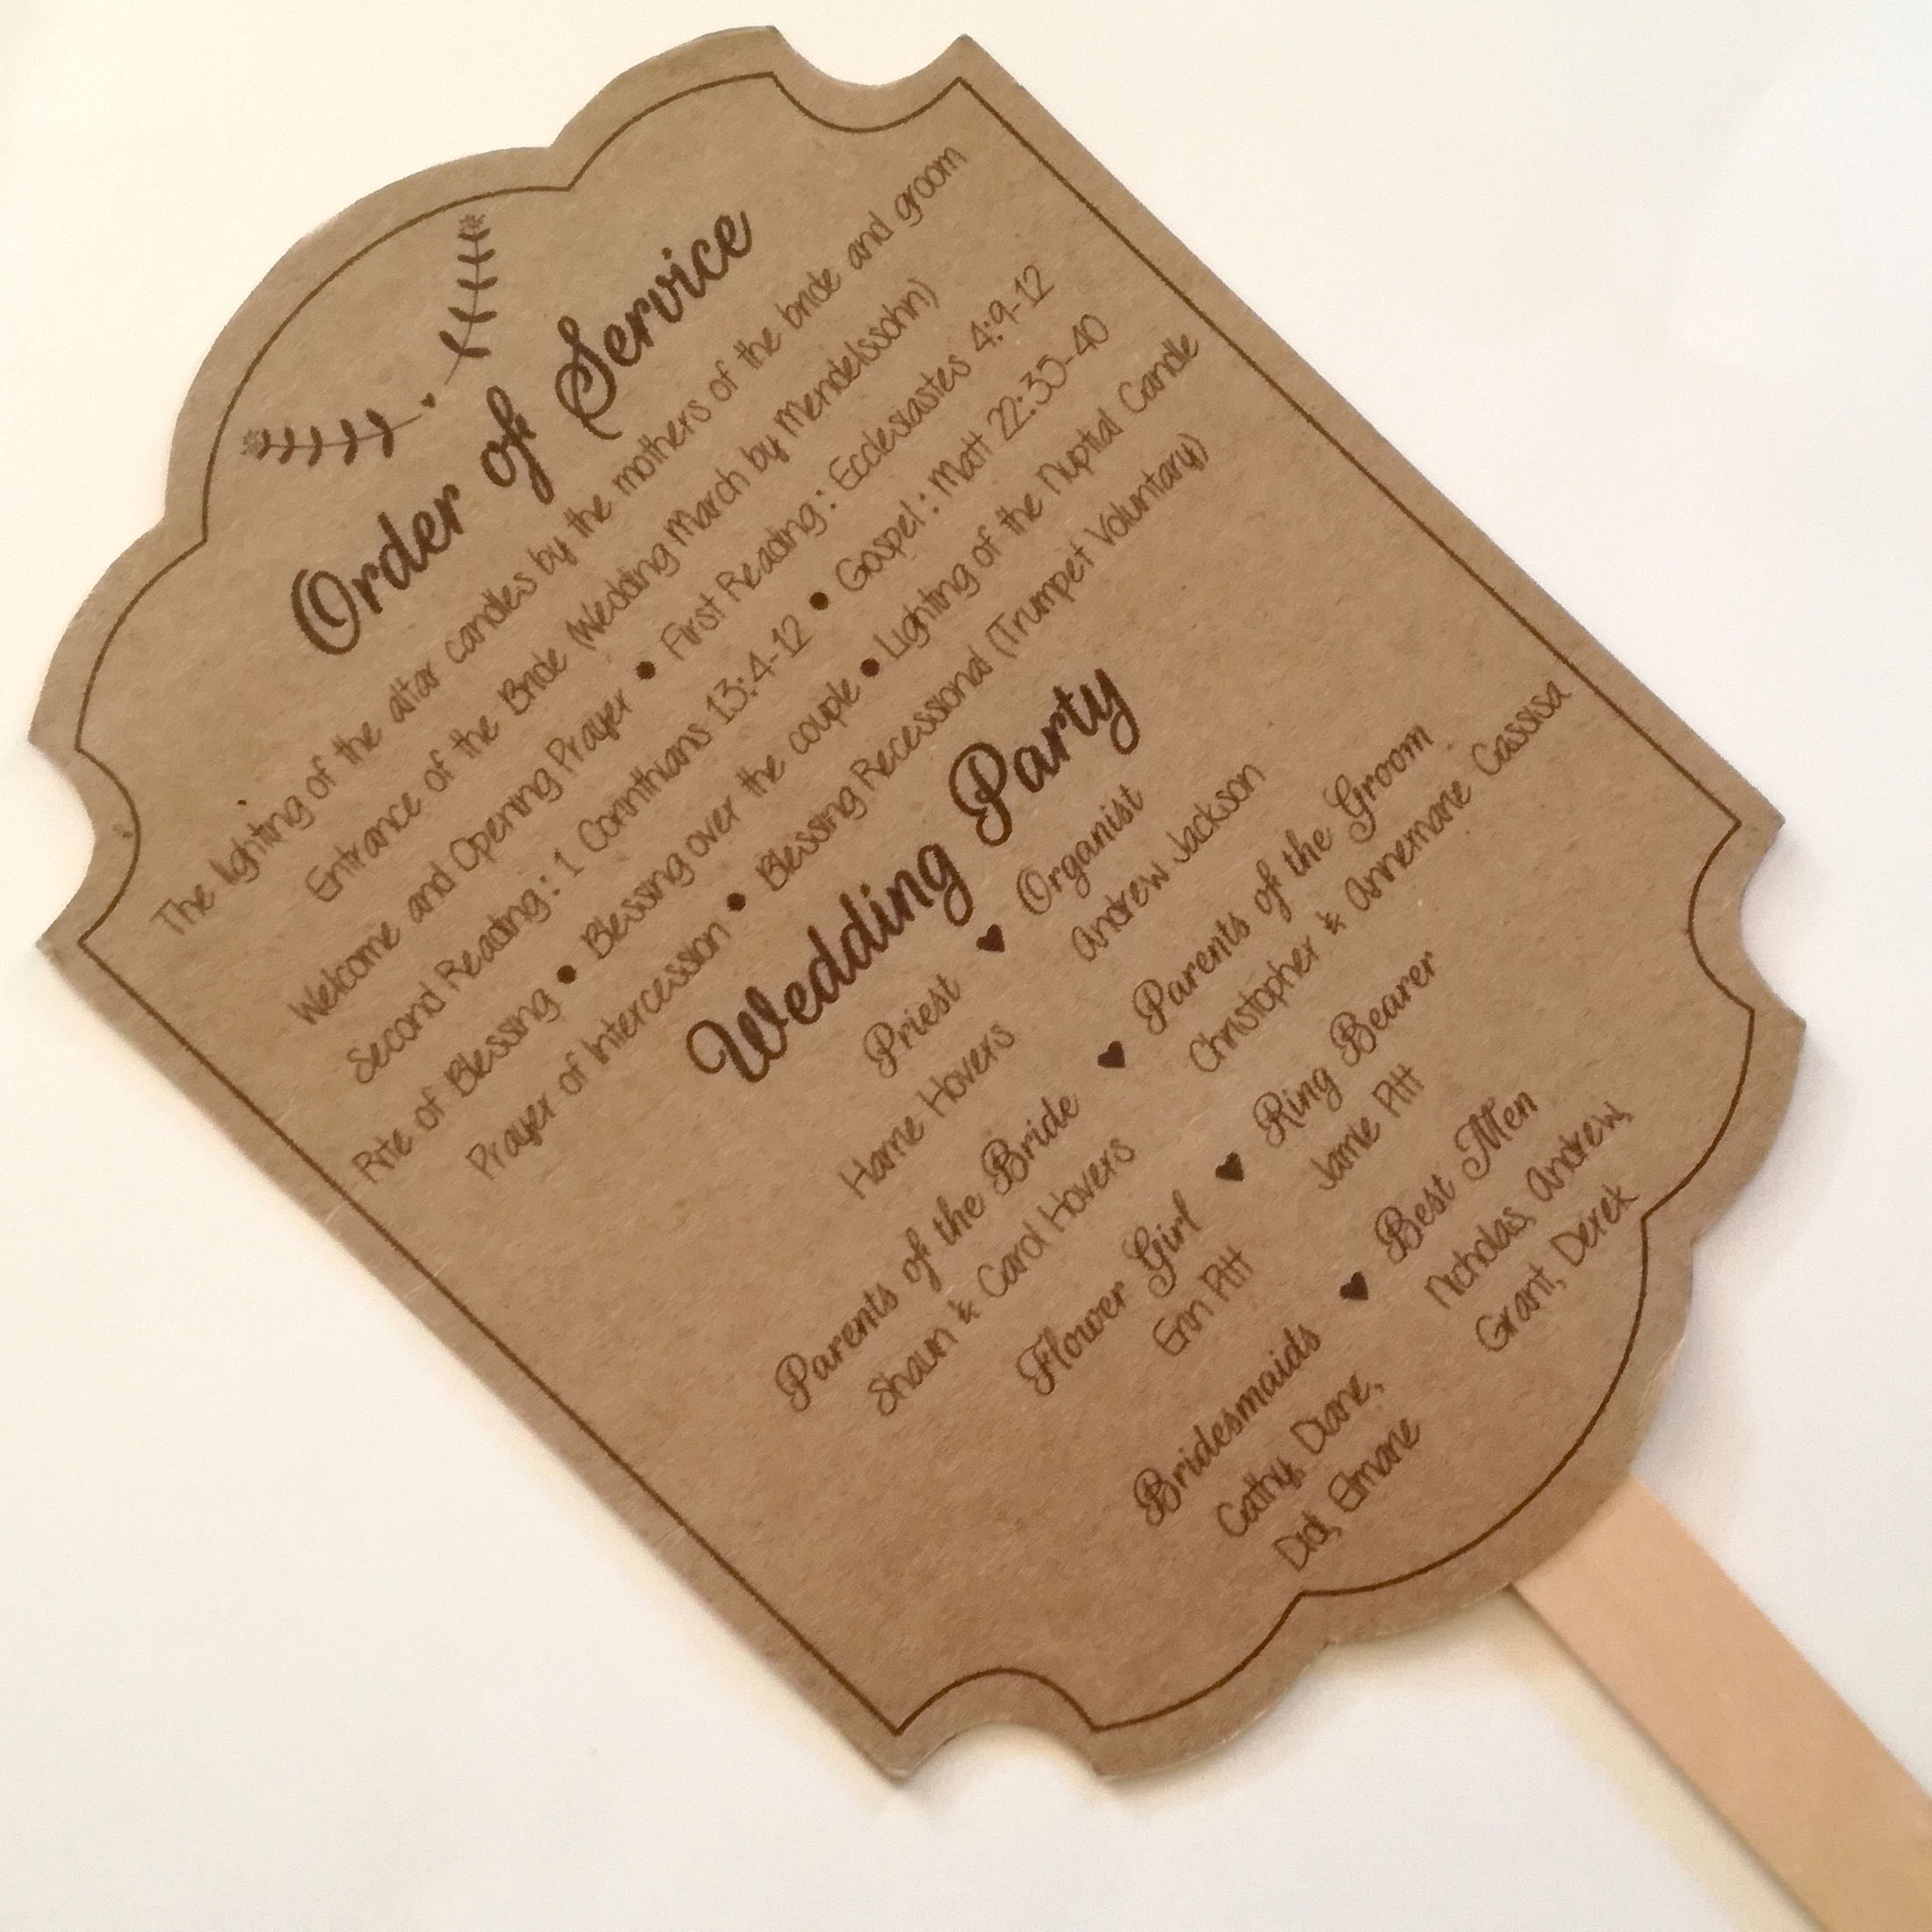 Order of Service
The lighting of the altar candles by the mothers of the bride and groom
Entrance of the Bride (Wedding March by Mendelssohn)
Welcome and Opening Prayer • First Reading: Ecclesiastes 4:9-12
Second Reading: 1 Corinthians 13:4-12 • Gospel: Matt 22:35-40
Rite of Blessing • Blessing over the couple • Lighting of the Nuptial Candle
Prayer of Intercession • Blessing Recessional (Trumpet Voluntary)
Wedding Party
Priest ♥ Organist
Harrie Hovers Andrew Jackson
Parents of the Bride ♥ Parents of the Groom
Shaun & Carol Hovers Christopher & Annemarie Cassisa
Flower Girl ♥ Ring Bearer
Erin Pitt Jamie Pitt
Bridesmaids ♥ Best Men
Cathy, Diane, Nicholas, Andrew,
Didi, Elmarie Grant, Derek